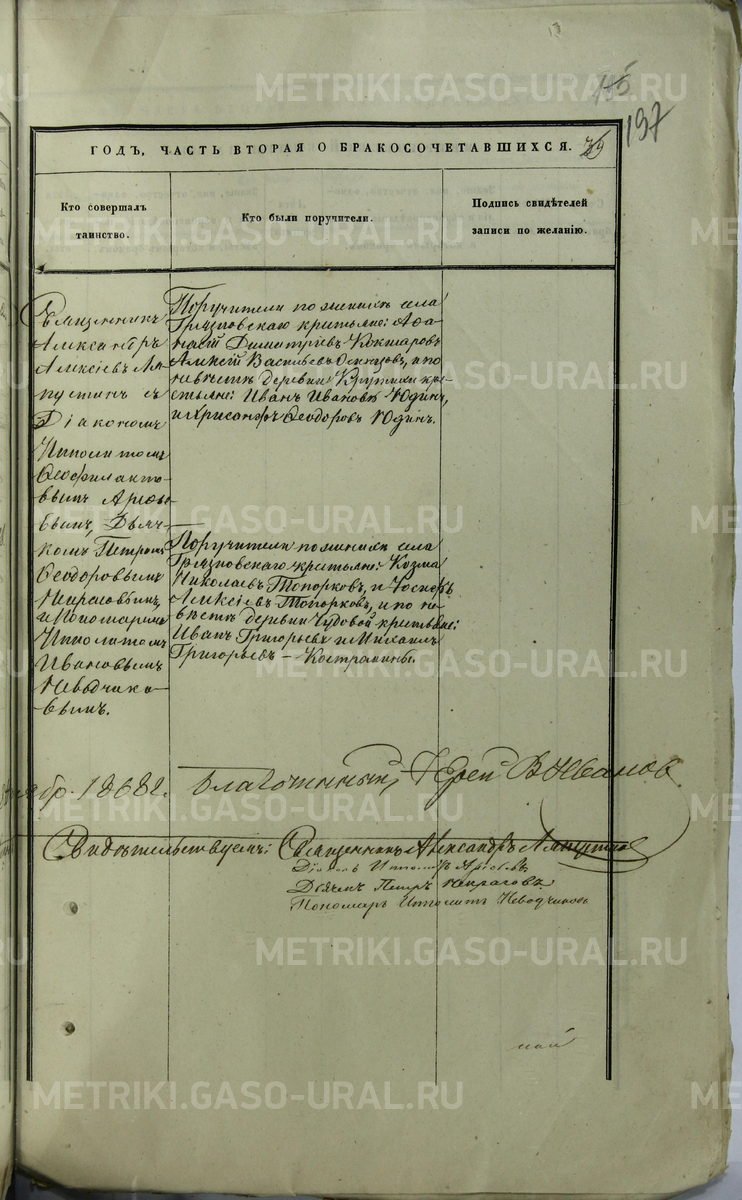 METRIKI.GASO-URAL.RU
13
115
197
ГОДЪ, ЧАСТЬ ВТОРАЯ О БРАКОСОЧЕТАВШИХСЯ. 39
Кто совершалъ
таинство.
Кто были поручители.
Подпись свидѣтелей
записи по желанію.
Священникъ
Александръ
Алексѣевъ Ля-
пустинъ съ
Діакономъ
Ипполитомъ
Ѳеофилакто-
вымъ Арефь-
евымъ, Дьяч-
комъ Петромъ
Ѳеодоровымъ
и Пономаремъ
Ипполитомъ
Ивановымъ
Неводчико-
вымъ.
Поручители по женихѣ села
Грязновскаго крестьяне: Аѳа-
насій Димитріевъ Кокшаровъ
Алексій Васильевъ и по
невѣстѣ деревни Крутихи кре-
стьяне: Иванъ Ивановъ Юдинъ,
и Хрисанфъ Ѳеодоровъ Юдинъ.
Поручители по женихѣ села
Грязновскаго крестьяне: Козма
Николаевъ Топорковъ, и Іосифъ
Алексіевъ Топорковъ, и по не-
вѣстѣ деревни Чудовой крестьяне:
Иванъ Григорьевъ и Михаилъ
Григорьевъ – Костромины.
1868 г.
Благочинный, Іерей В Ивановъ
Свидѣтельствуемъ: Священникъ Александръ Ляпустинъ
Діаконъ Ипполитъ Арефьевъ
Дьячекъ Петръ
Пономарь Ипполитъ Неводчиковъ
май